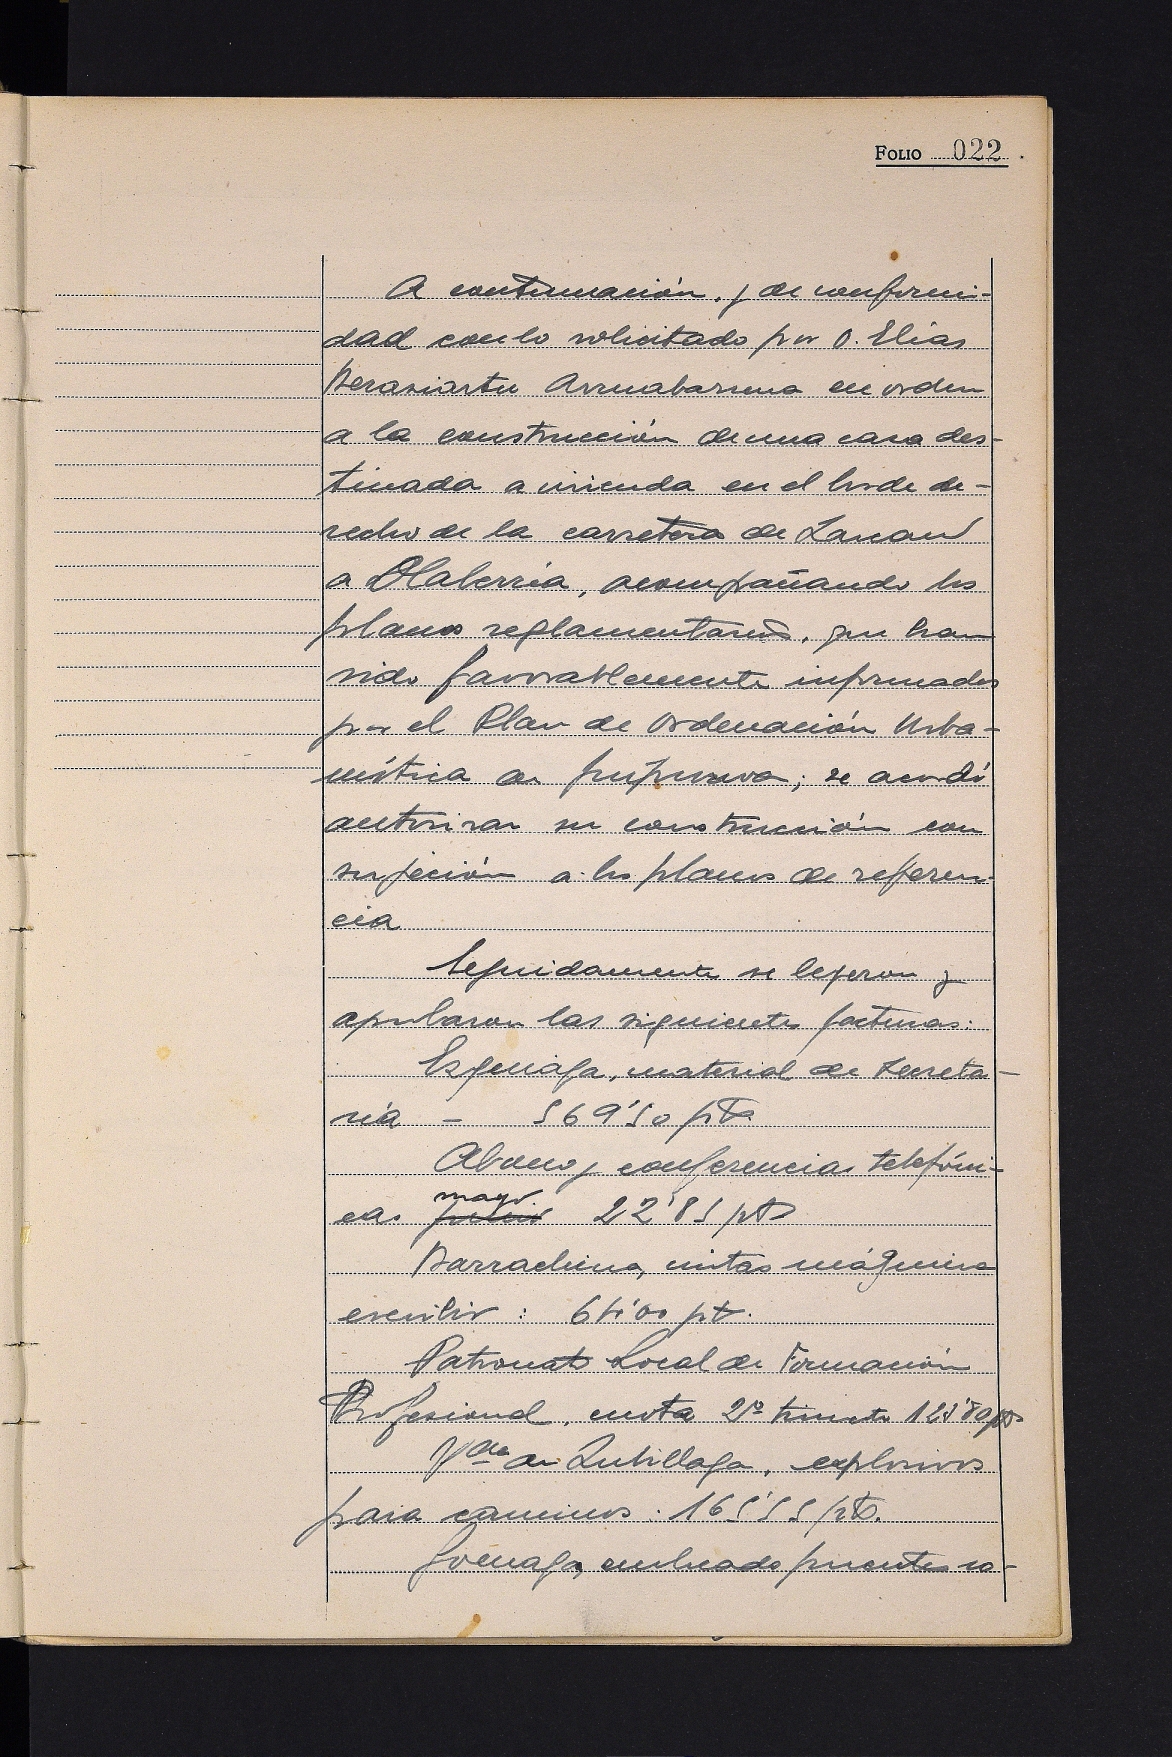 FOLIO 022
A continuación, y de conformi-
dad con lo solicitado por D. Elías
Berasiartu Arruabarrena en orden
a la construcción de una casa des-
tinada a vivienda en el borde de-
recho de la carretera de Lazcano
a Olaberria, acompañando los
planos reglamentarios, que han
sido favorablemente informados
por el Plan de Ordenación Urba-
nística de Guipuzcoa; se acordó
autorizar su construcción con
sujeción a los planos de referen-
cia
Seguidamente se leyeron y
aprobaron las siguientes facturas:
material de Secreta-
ria - 569'50 pts
Abono y conferencias telefóni-
cas mayo 22'85 pts
Barrachina, cintas máquina
escribir : pts.
Patronato Local de Formación
Profesional, cuota 2º trimestre pts
Vda de Zubillaga, explosivos
para caminos : 165'55 pts.
puentes